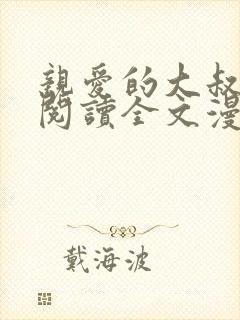 親愛的大叔
閱讀全文漫
戴海波